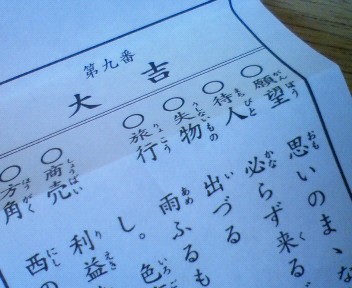 第九番
大吉
○願望 思いのまゝな
○待人 必らず来る
○失物 出づる
○旅行 雨ふるも
し。
○商売 利益
○方角 西の